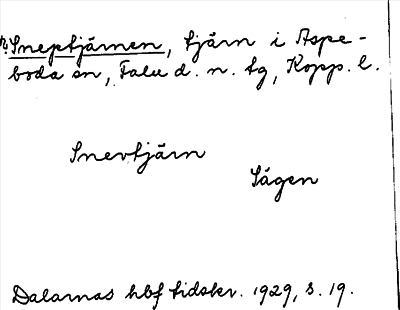 Sneptjärnen, tjärn i Aspe-
boda sn, Falu d. n. tg, Kopp. l.
Snevtjärn
Sågen
Dalarnas hbf tidskr. 1929, s. 19.